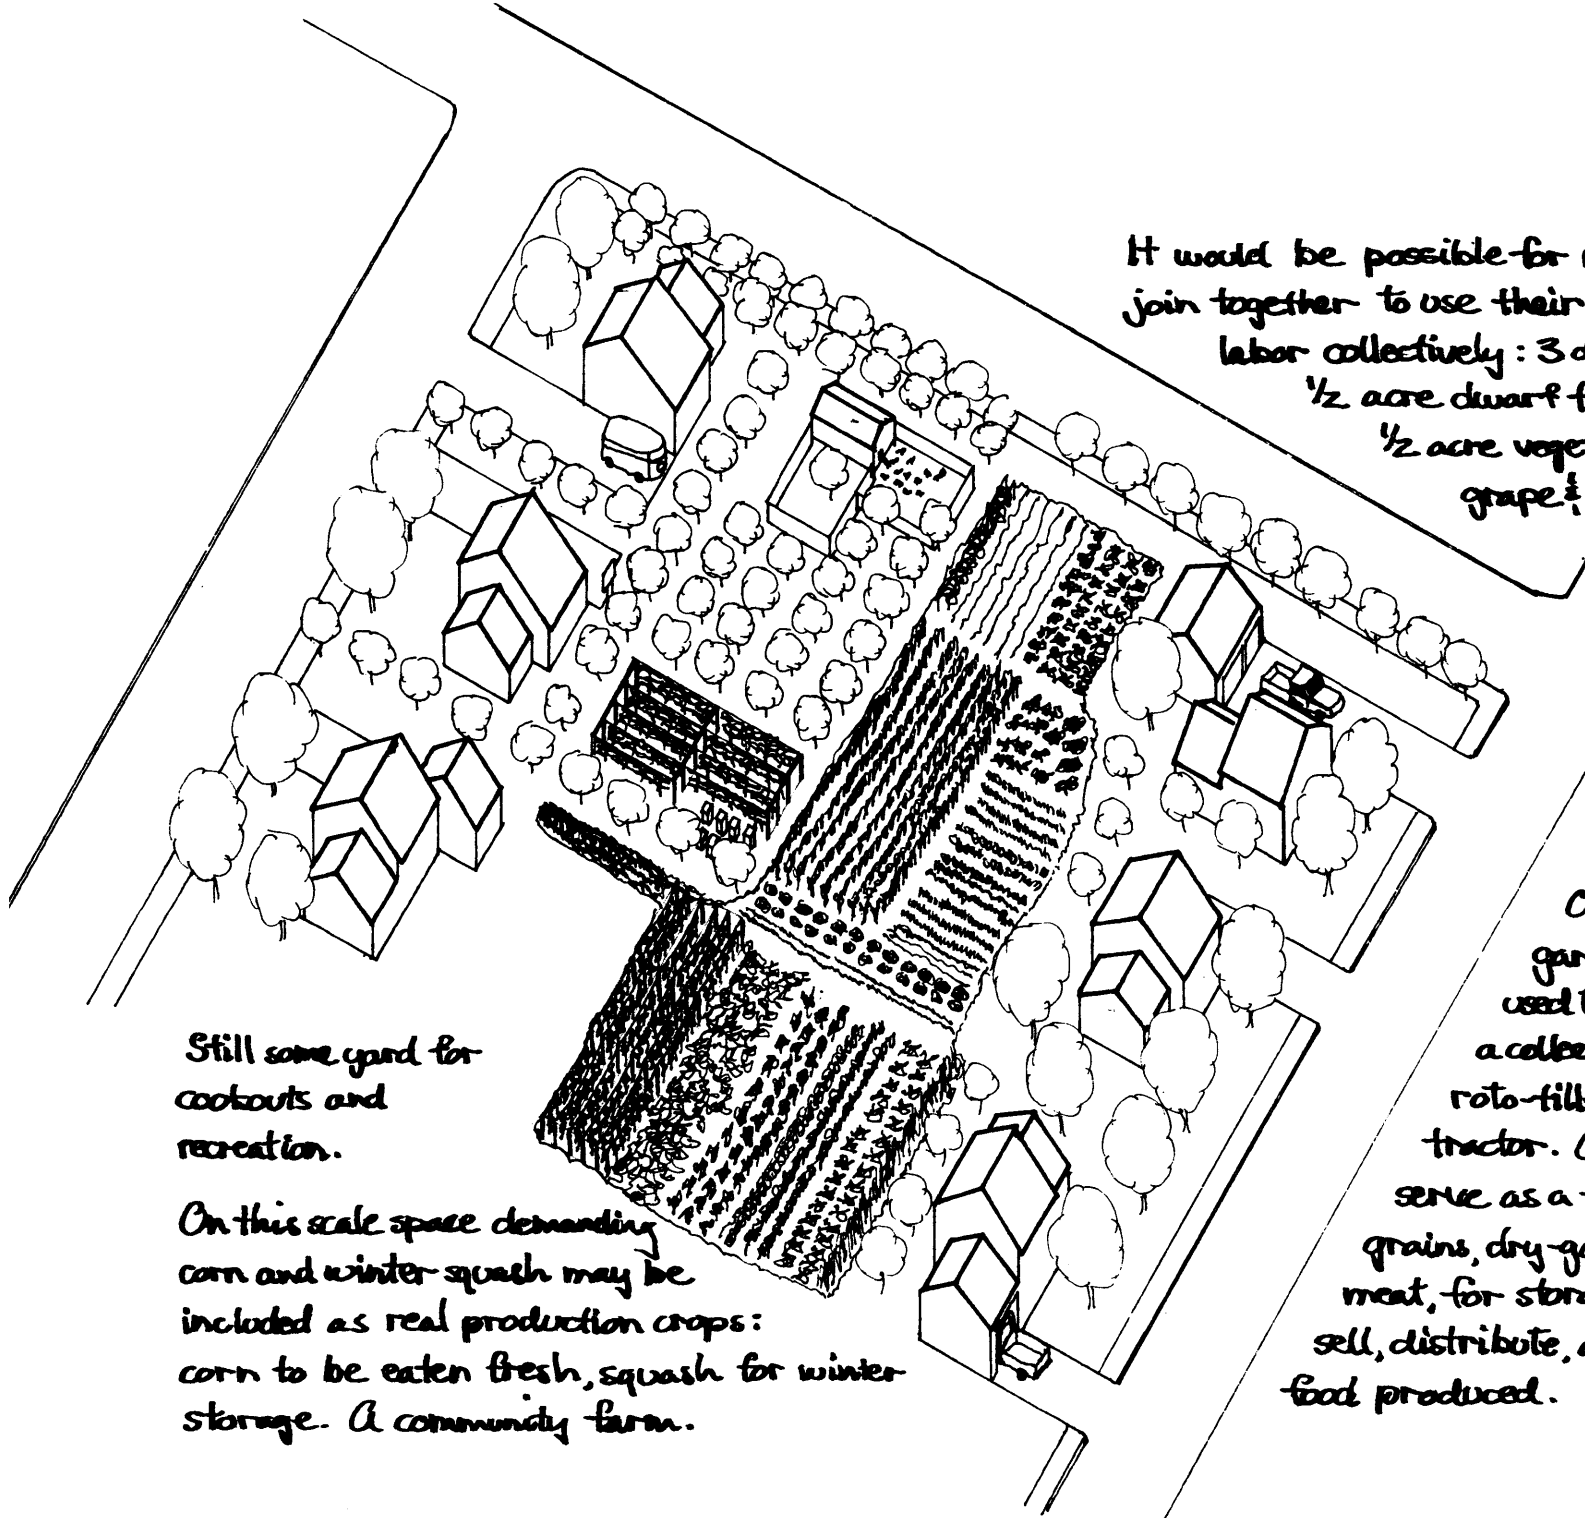 It would be possible for
join together to use their
labor collectively: 3
1/2 acre dwarf
1/2 acre
grape &
Still some yard for
cookouts and
recreation.
On this scale space demanding
corn and winter squash may be
included as real production crops:
corn to be eaten fresh, squash for winter
storage. A community farm.
used
a
tractor.
serve as a
grains,
meat, for
sell, distribute,
food produced.